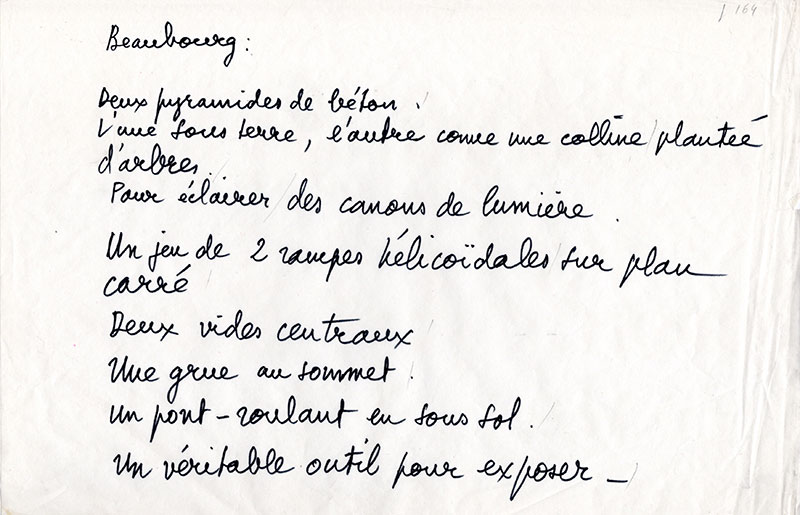 164
Beaubourg :
Deux pyramides de béton.
L'une sous terre, l'autre comme une colline plantée
d'arbres.
Pour éclairer des canons de lumière.
Un jeu de 2 rampes hélicoïdales sur plan
carré
Deux vides centraux
Une grue au sommet.
un pont-roulant en sous sol.
Un véritable outil pour exposer _